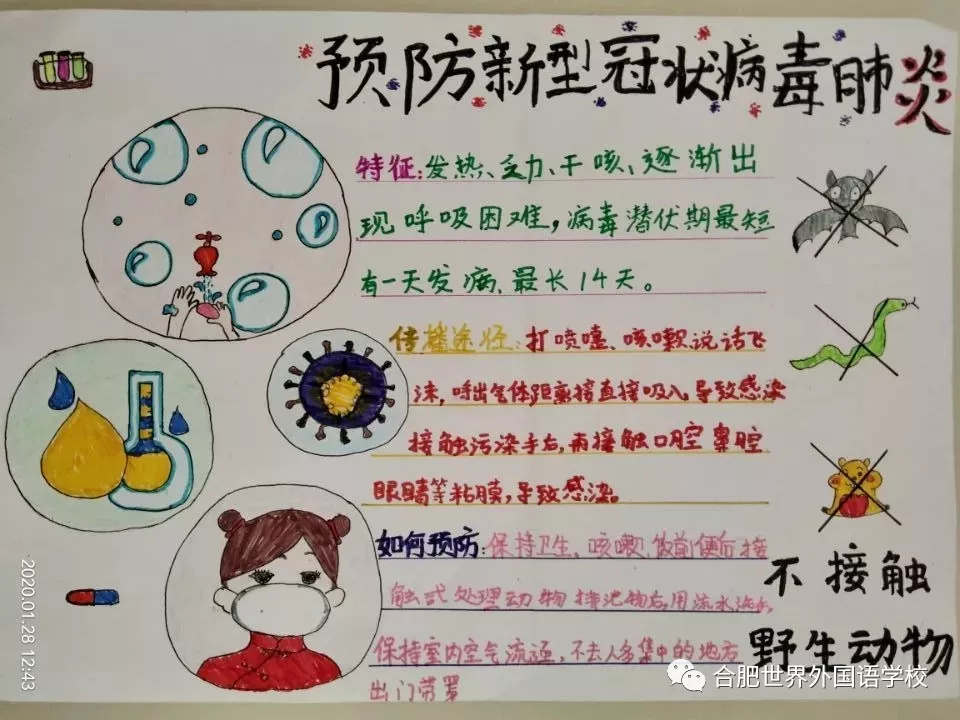 预防新型冠状病毒肺炎
特征:发热、乏力、干咳、逐渐出
现呼吸困难,病毒潜伏期最短
有一天发病、最长14天。
传播途径:打喷嚏、咳嗽、说话飞
沫,呼出气体距离接直接吸入,导致感染
接触污染手后,再接触口腔鼻腔
眼睛等粘膜,导致感染。
如何预防:保持卫生,咳嗽、饭前便后接
触或处理动物排泄物后,用流水洗手,
保持室内空气流通,不去人多集中的地方
出门带罩
不接触
野生动物
2020.01.28 12:43
合肥世界外国语学校